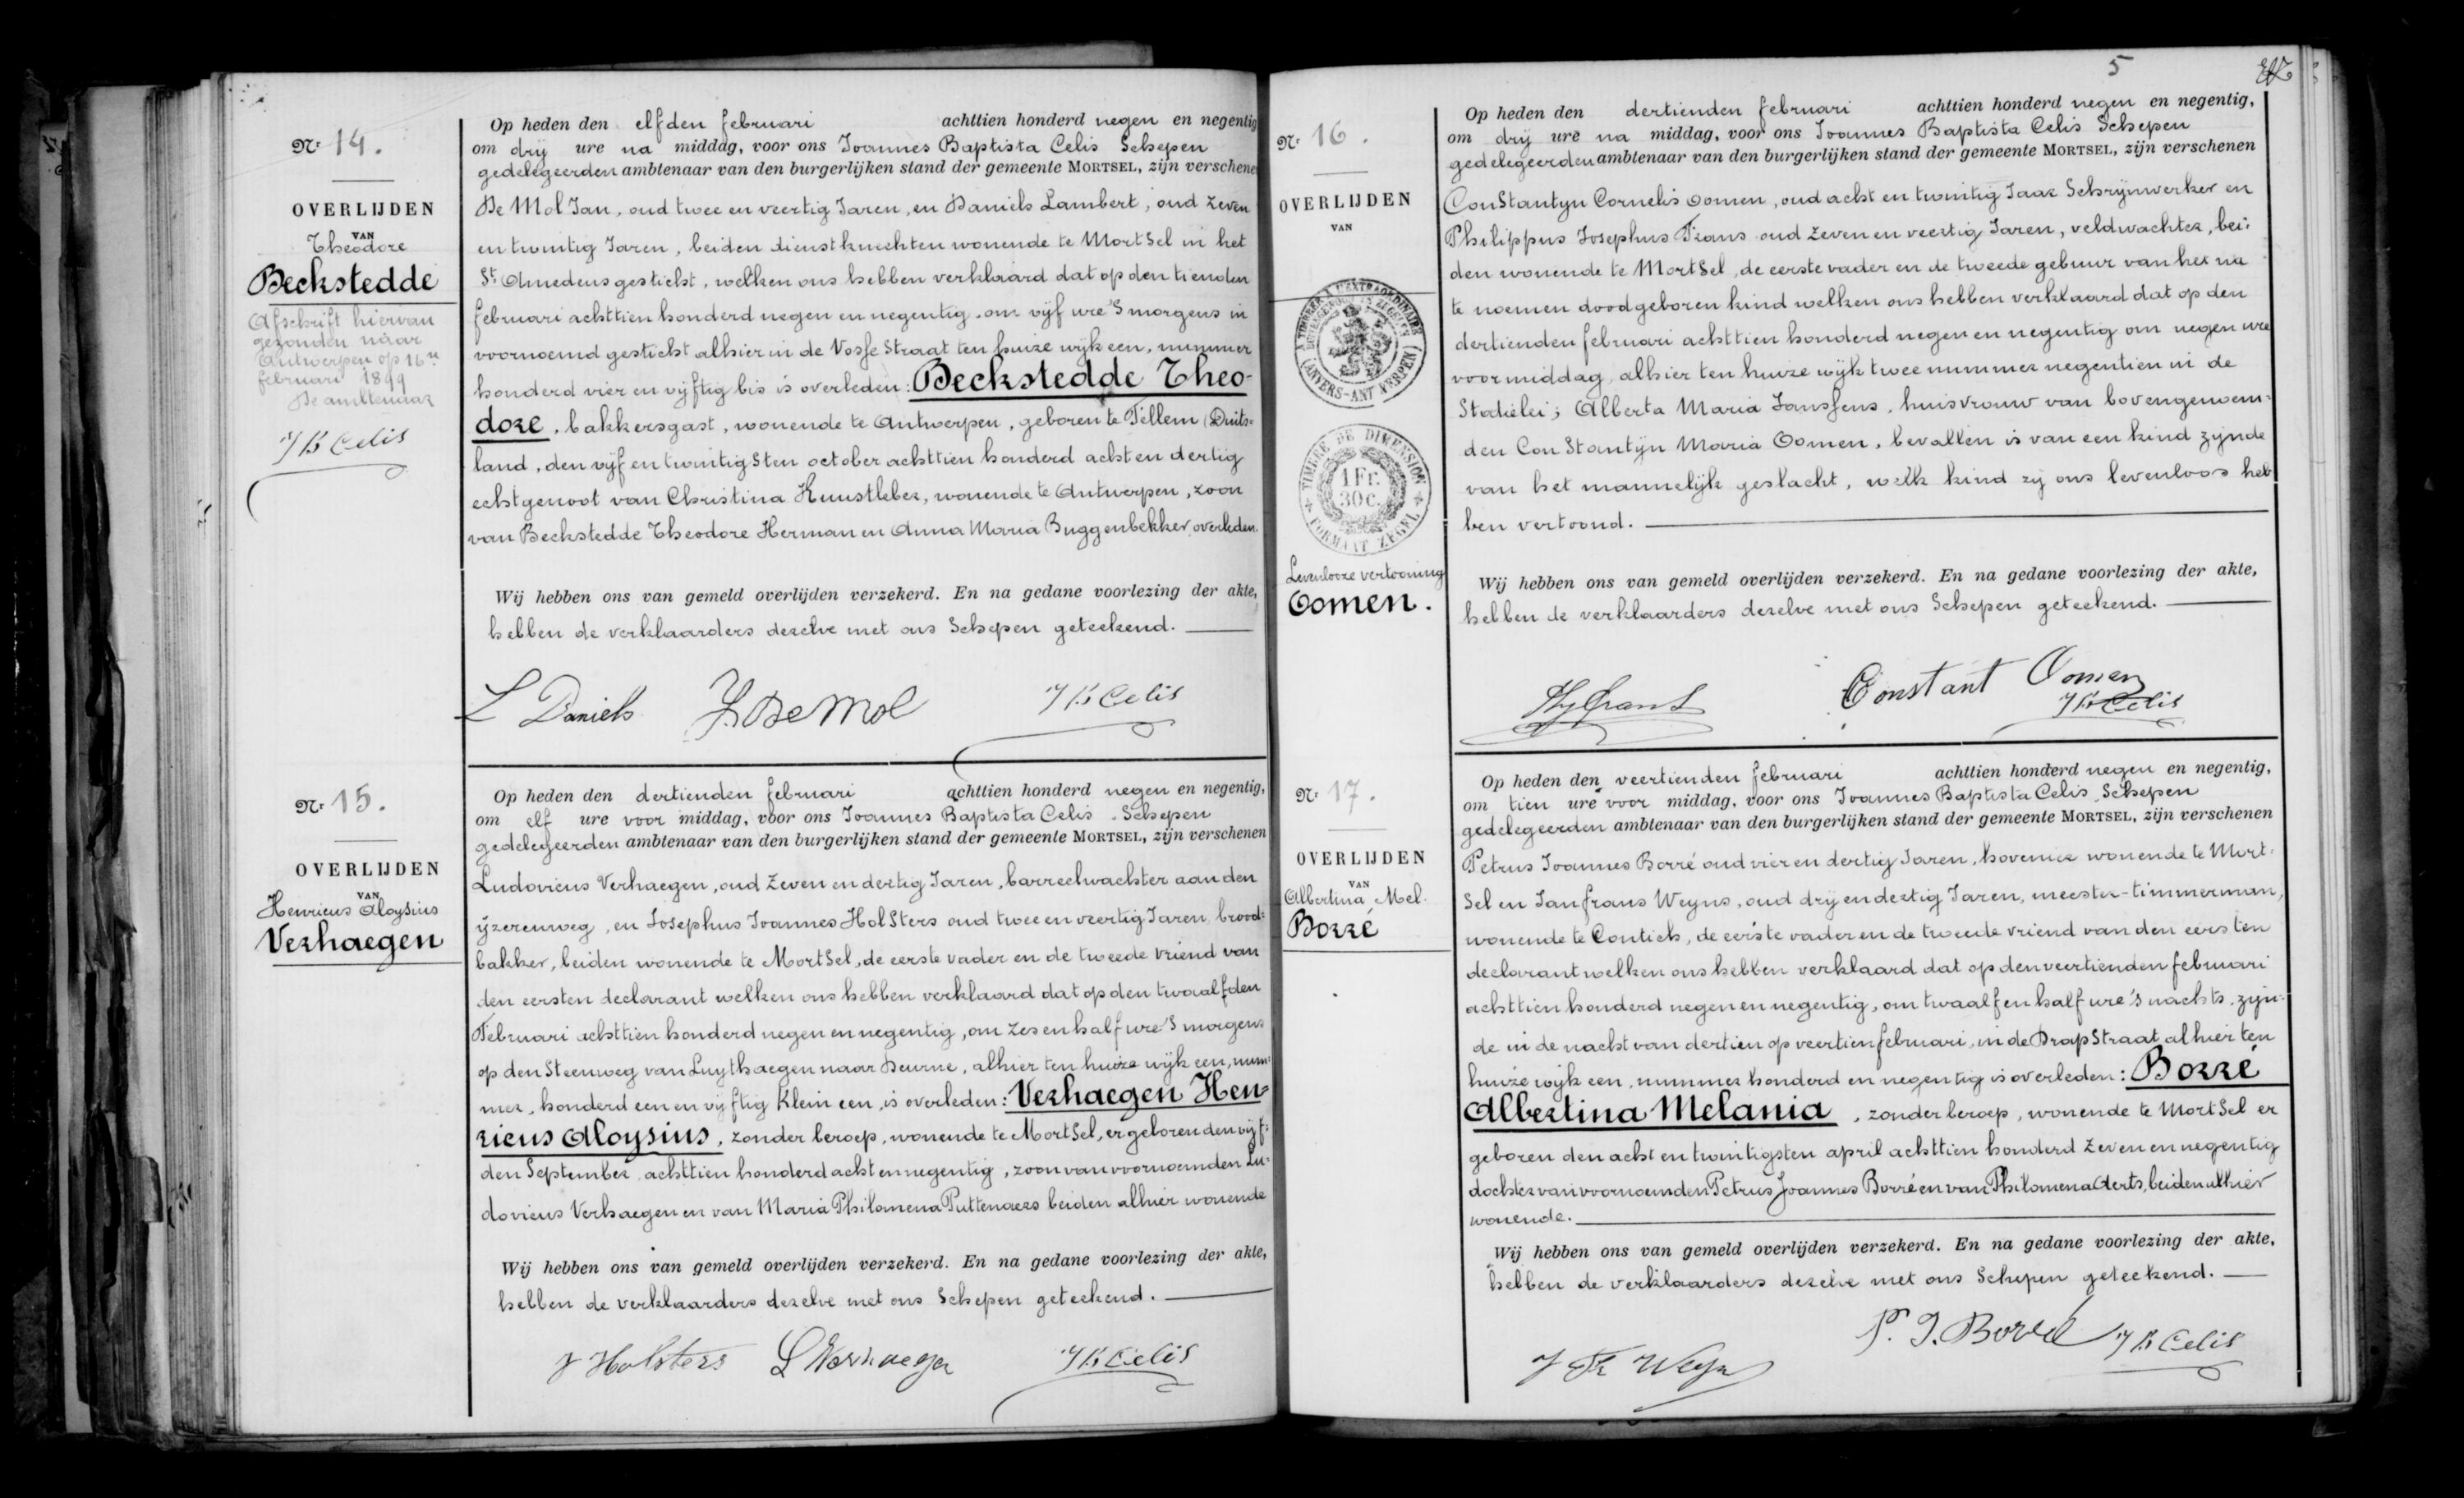 Nr 14.
OVERLIJDEN
VAN
Theodore
Beckstedde
Afschrift hiervan
gezonden naar
Antwerpen op 16n
februari 1899
De ambtenaar
JB Celis
Op heden den elfden februari achttien honderd negen en negentig
om drij ure na middag, voor ons Joannes Baptista Celis Schepen
gedelegeerden ambtenaar van den burgerlijken stand der gemeente MORTSEL, zijn verschenen
De Mol Jan, oud twee en veertig Jaren, en Daniels Lambert, oud Zeven
en twintig Jaren, beiden dienstknechten wonende te Mortsel in het
St Amedeusgesticht, welken ons hebben verklaard dat op den tienden
februari achttien honderd negen en negentig om vijf ure 's morgens in
voornoemd gesticht alhier in de Vosse Straat ten huize wijk een, nummer
honderd vier en vijftig bis is overleden: Beckstedde Theo-
dore, bakkersgast, wonende te Antwerpen, geboren te Tellem (Duits=
land, den vijf en twintigsten october achttien honderd acht en dertig
echtgenoot van Christina Kunstleber, wonende te Antwerpen, zoon
van Beckstedde Theodore Herman en Anna Maria Buggenbekker, overleden.
Wij hebben ons van gemeld overlijden verzekerd. En na gedane voorlezing der akte,
hebben de verklaarders dezelve met ons Schepen geteekend.
L Daniels J De Mol JB Celis
Nr 15.
OVERLIJDEN
VAN
Henricus Aloysius
Verhaegen
Op heden den dertienden februari achttien honderd negen en negentig,
om elf ure voor middag, voor ons Joannes Baptista Celis Schepen
gedelegeerden ambtenaar van den burgerlijken stand der gemeente MORTSEL, zijn verschenen
Ludovicus Verhaegen, oud Zeven en dertig Jaren, barreelwachter aan den
ijzerenweg, en Josephus Joannes Holsters oud twee en veertig Jaren, brood=
bakker, beiden wonende te Mortsel, de eerste vader en de tweede vriend van
den eersten declarant welken ons hebben verklaard dat op den twaalfden
Februari achttien honderd negen en negentig, om zes en half ure 's morgens
op den Steenweg van Luythaegen naar Deurne, alhier ten huize wijk een, num=
mer, honderd een en vijftig klein een, is overleden: Verhaegen Hen=
ricus Aloysius, zonder beroep, wonende te Mortsel, er geboren den vijf=
den September achttien honderd acht en negentig, zoon van voornoemden Lu=
dovicus Verhaegen en van Maria Philomena Puttenaers beiden alhier wonende
Wij hebben ons van gemeld overlijden verzekerd. En na gedane voorlezing der akte,
hebben de verklaarders dezelve met ons Schepen geteekend.
J Holsters L Verhaegen JB Celis
5
Nr 16.
OVERLIJDEN
VAN
TIMBRE A L'EXTRAORDINAIRE
(ANVERS-ANTWERPEN)
TIMBRE DE DIMENSION
1 Fr.
30 c.
FORMAAT ZEGEL
Levenlooze vertooning
Oomen.
Op heden den dertienden februari achttien honderd negen en negentig,
om drij ure na middag, voor ons Joannes Baptista Celis Schepen
gedelegeerden ambtenaar van den burgerlijken stand der gemeente MORTSEL, zijn verschenen
Constantyn Cornelis Oomen, oud acht en twintig Jaar Schrijnwerker en
Philippus Josephus Frans oud zeven en veertig Jaren, veldwachter, bei=
den wonende te Mortsel, de eerste vader en de tweede gebuur van het na
te noemen doodgeboren kind welken ons hebben verklaard dat op den
dertienden februari achttien honderd negen en negentig om negen ure
voormiddag, alhier ten huize wijk twee nummer negentien in de
Statielei; Alberta Maria Janssens, huisvrouw van bovengenoem=
den Constantijn Maria Oomen, bevallen is van een kind zijnde
van het mannelijk geslacht, welk kind zij ons levenloos heb
ben vertoond.
Wij hebben ons van gemeld overlijden verzekerd. En na gedane voorlezing der akte,
hebben de verklaarders dezelve met ons Schepen geteekend.
Constant Oomen
JB Celis
Nr 17.
OVERLIJDEN
VAN
Albertina Mel.
Borré
Op heden den veertienden februari achttien honderd negen en negentig,
om tien ure voor middag, voor ons Joannes Baptista Celis Schepen
gedelegeerden ambtenaar van den burgerlijken stand der gemeente MORTSEL, zijn verschenen
Petrus Joannes Borré oud vier en dertig Jaren, hovenier wonende te Mort=
sel en Jan frans Weyns, oud drij en dertig Jaren, meester-timmerman,
wonende te Contich, de eerste vader en de tweede vriend van den eersten
declarant welken ons hebben verklaard dat op den veertienden februari
achttien honderd negen en negentig, om twaalf en half ure 's nachts, zijn=
de in de nacht van dertien op veertien februari, in de Drapstraat alhier ten
huize wijk een, nummer honderd en negentig is overleden: Borré
Albertina Melania, zonder beroep, wonende te Mortsel er
geboren den acht en twintigsten april achttien honderd zeven en negentig
dochter van voornoemden Petrus Joannes Borré en van Philomena Aerts, beiden alhier
wonende.
Wij hebben ons van gemeld overlijden verzekerd. En na gedane voorlezing der akte,
hebben de verklaarders dezelve met ons Schepen geteekend.
P. J. Borré JB Celis
J Fr Weyns